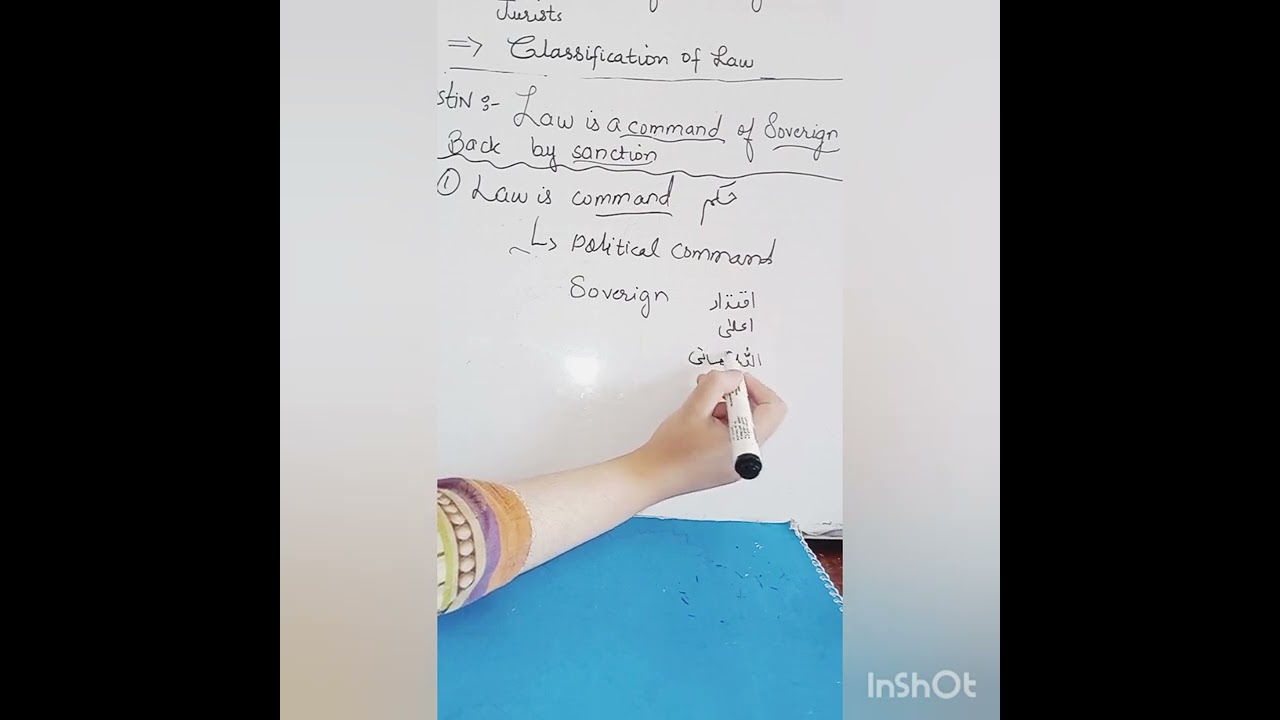 Jurists
=> Classification of Law
stiN :- Law is a command of Soverign
Back by sanction
① Law is command حکم
↳ Political Command
Soverign اقتدار
اعلیٰ
اللہ تعالیٰ
InShOt